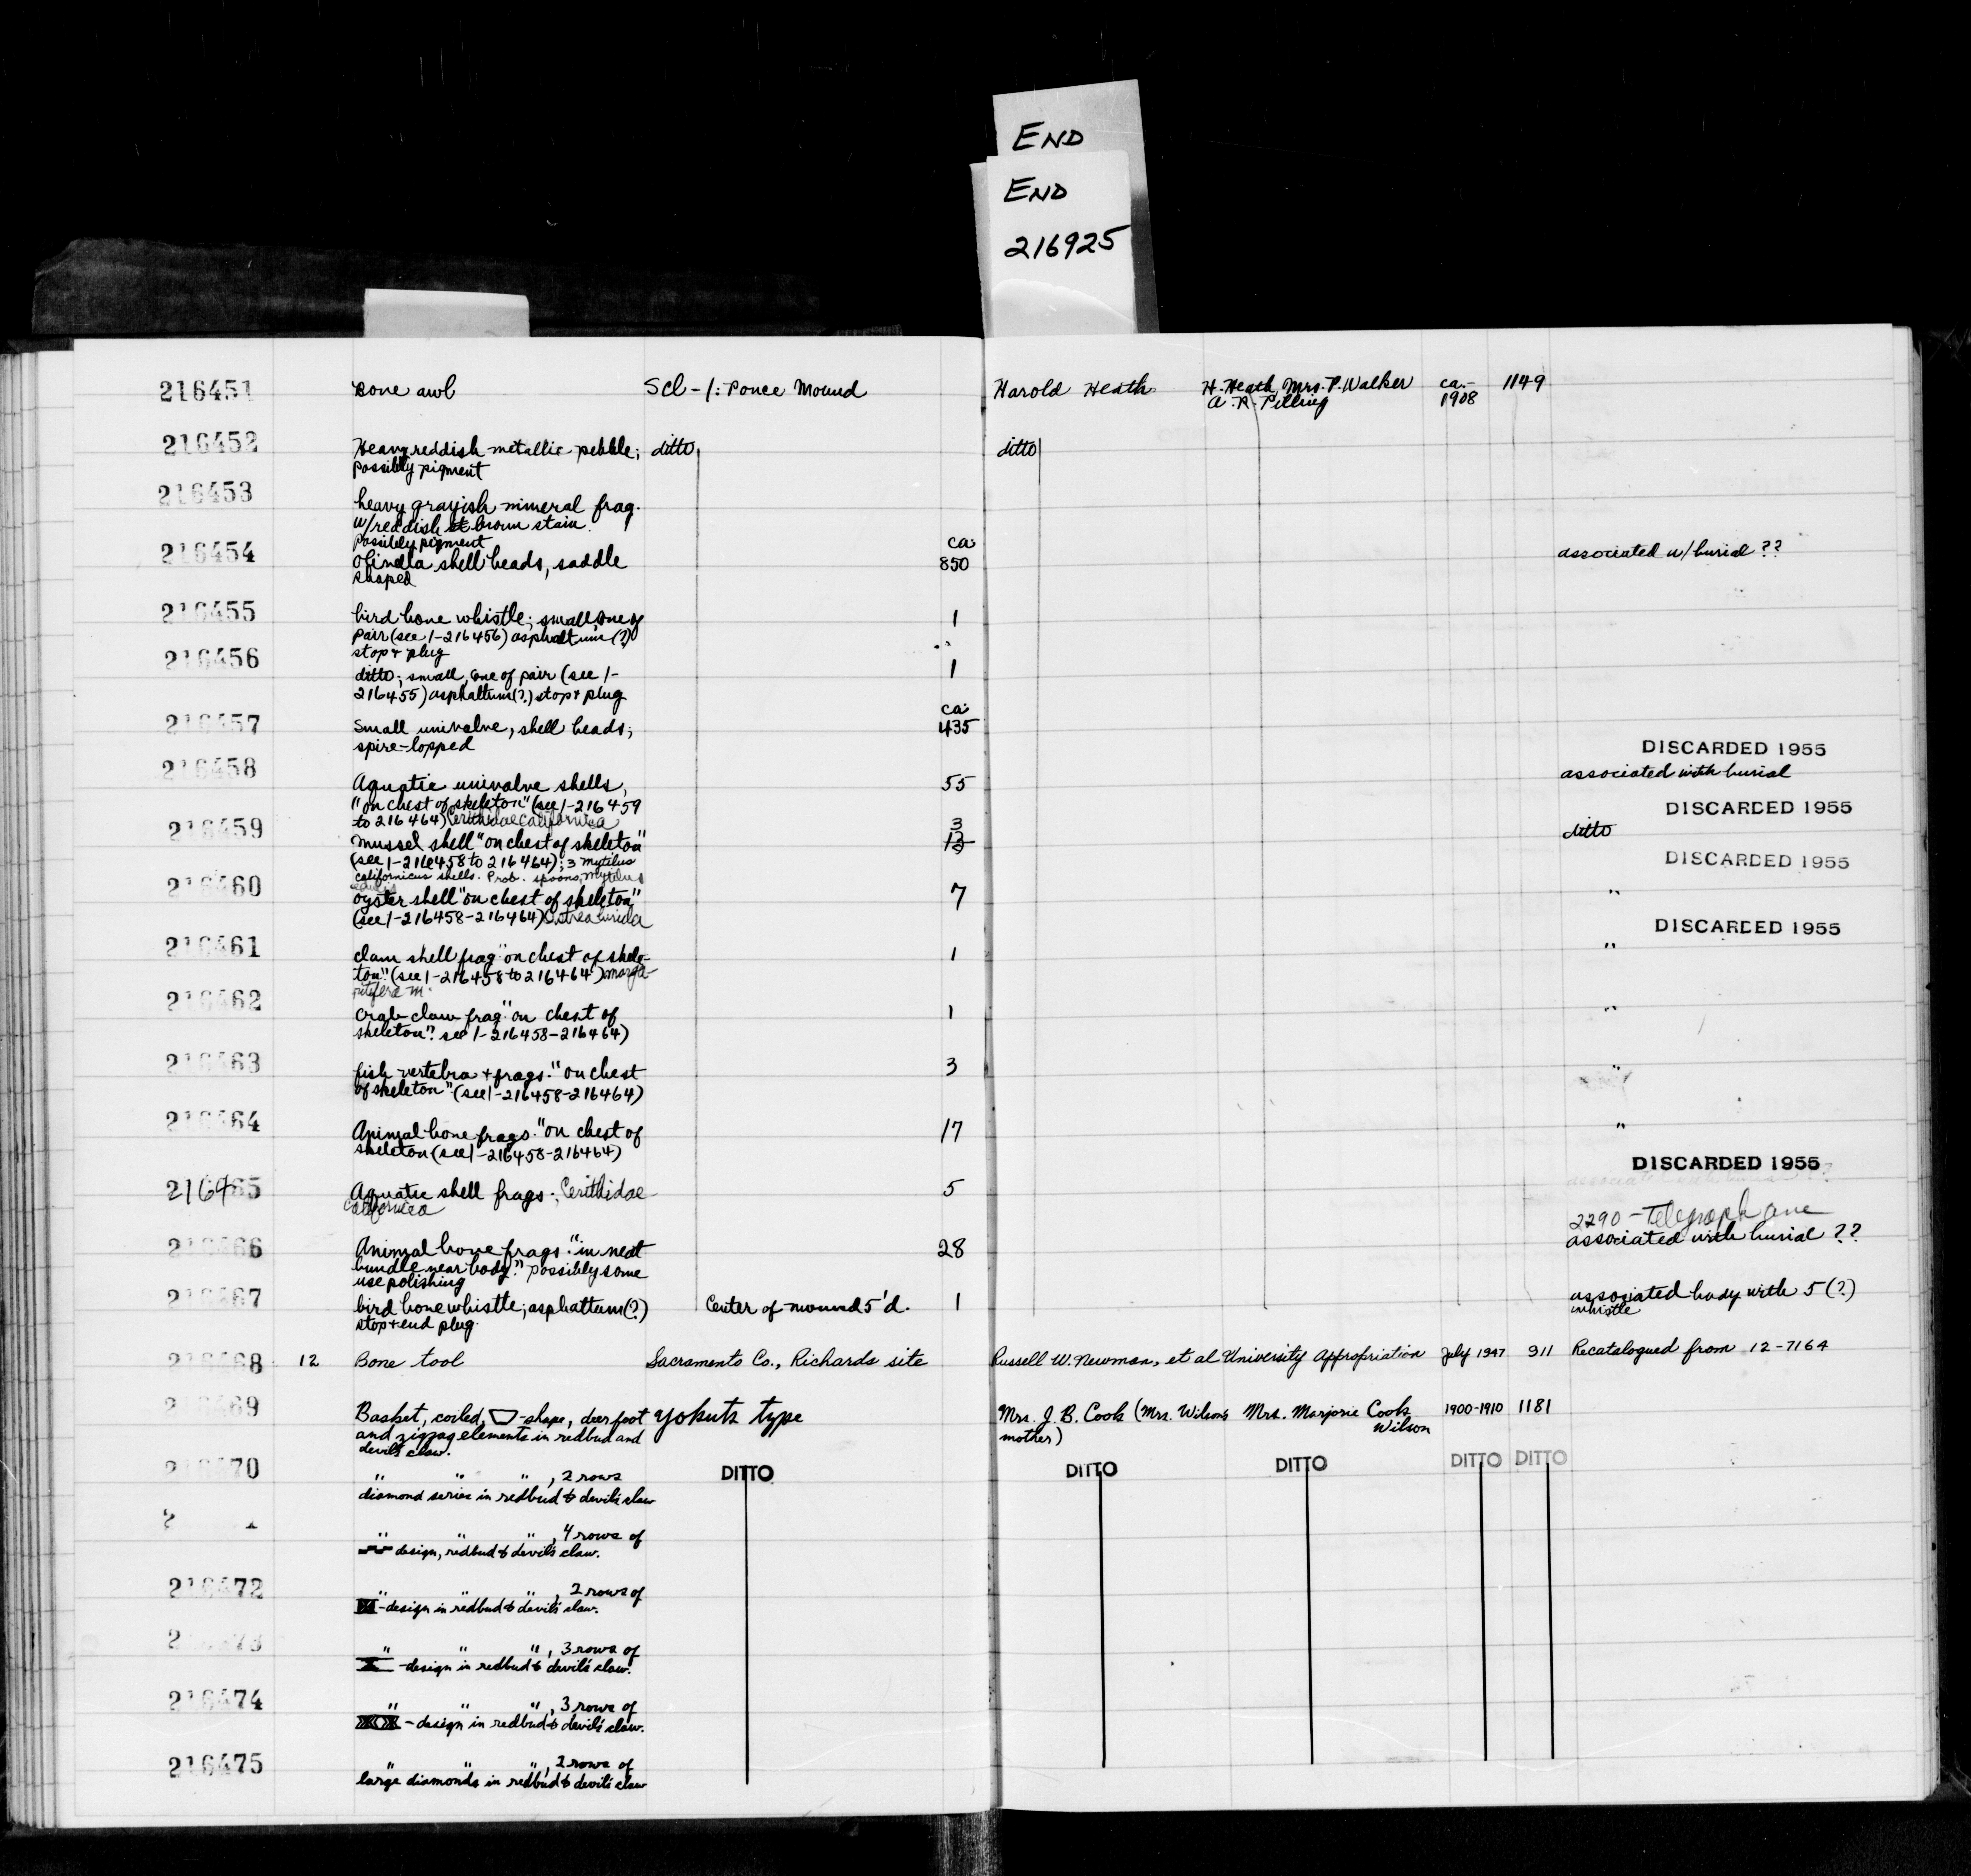 END
END
216925
216451 Bone awl Scl-1: Ponce Mound Harold Heath H. Heath, Mrs. P. Walker ca.- 1149
A. R. Pilling 1908
216452 Heavy reddish metallic pebble; ditto ditto
possibly pigment
216453 heavy grayish mineral frag.
w/reddish brown stain
possibly pigment ca.
216454 Olivella shell beads, saddle 850 associated w/burial ??
shaped
216455 bird bone whistle; small, one of 1
pair (see 1-216456) asphaltum (?)
stop & plug
216456 ditto; small, one of pair (see 1- 1
216455) asphaltum (?) stop & plug
ca.
216457 Small univalve, shell beads; 435
spire-lopped DISCARDED 1955
216458 Aquatic univalve shells, 55 associated with burial
"on chest of skeleton" (see 1-216459
to 216464) Cerithidae californica DISCARDED 1955
216459 mussel shell "on chest of skeleton" 3 ditto
(see 1-216458 to 216464); 3 mytilus
californicus shells. Prob. spoons, Mytilus DISCARDED 1955
edulis
216460 oyster shell "on chest of skeleton" 7 "
(see 1-216458-216464) Ostrea lurida DISCARDED 1955
216461 clam shell frag "on chest of skele- 1 "
ton" (see 1-216458 to 216464) marga-
ritifera m.
216462 crab claw frag "on chest of 1 "
skeleton". see 1-216458-216464)
216463 fish vertebra + frags. "on chest 3 "
of skeleton" (see 1-216458-216464)
216464 Animal bone frags. "on chest of 17 "
skeleton (see 1-216458-216464)
DISCARDED 1955
216465 Aquatic shell frags.; Cerithidae 5
californica
2290 - Telegraph ave
216466 Animal bone frags. "in neat 28 associated with burial ??
bundle near body." possibly some
use polishing
216467 bird bone whistle; asphaltum (?) Center of mound 5'd. 1 associated body with 5 (?)
stop + end plug. whistle
216468 12 Bone tool Sacramento Co., Richards site Russell W. Newman, et al University Appropriation July 1947 911 Recatalogued from 12-7164
216469 Basket, coiled, -shape, deer foot Yokuts type Mrs. J. B. Cook (Mrs. Wilson's Mrs. Marjorie Cook 1900-1910 1181
and zigzag elements in redbud and mother) Wilson
devil's claw.
216470 " " " , 2 rows DITTO DITTO DITTO DITTO DITTO
diamond series in redbud & devil's claw
" " " , 4 rows of
design, redbud & devil's claw.
216472 " " " , 2 rows of
-design in redbud & devil's claw.
" " " , 3 rows of
-design in redbud & devil's claw.
216474 " " " , 3 rows of
-design in redbud & devil's claw.
216475 " " " , 2 rows of
large diamonds in redbud & devil's claw